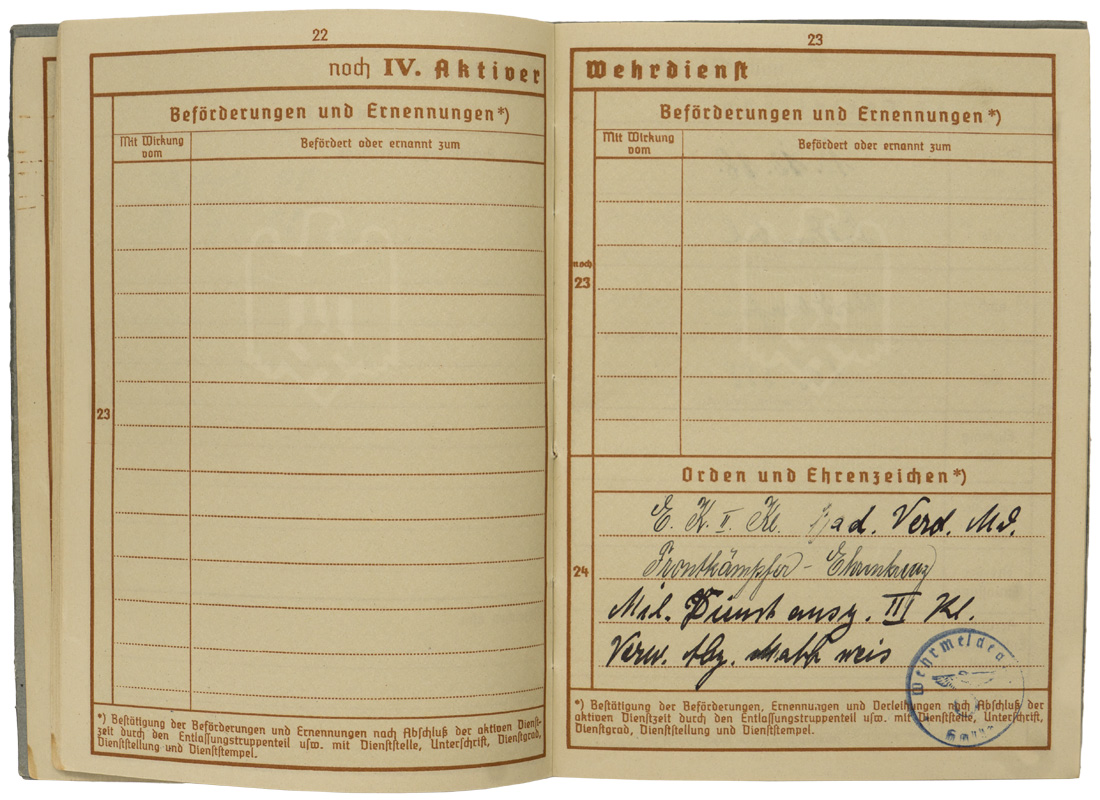 22
noch IV. Aktiver
Beförderungen und Ernennungen*)
Mit Wirkung vom
Befördert oder ernannt zum
23
*) Bestätigung der Beförderungen und Ernennungen nach Abschluß der aktiven Dienst-
zeit durch den Entlassungstruppenteil usw. mit Dienststelle, Unterschrift, Dienstgrad,
Dienststellung und Dienststempel.
23
Wehrdienst
Beförderungen und Ernennungen*)
Mit Wirkung vom
Befördert oder ernannt zum
noch
23
Orden und Ehrenzeichen*)
24
E. K. II. Kl. Bad. Verd. Md.
Frontkämpfer-Ehrenkreuz
Mil. Dienstausz. III Kl.
Verw. Abz.
Wehrmeldea
*) Bestätigung der Beförderungen, Ernennungen und Verleihungen nach Abschluß der
aktiven Dienstzeit durch den Entlassungstruppenteil usw. mit Dienststelle, Unterschrift,
Dienstgrad, Dienststellung und Dienststempel.